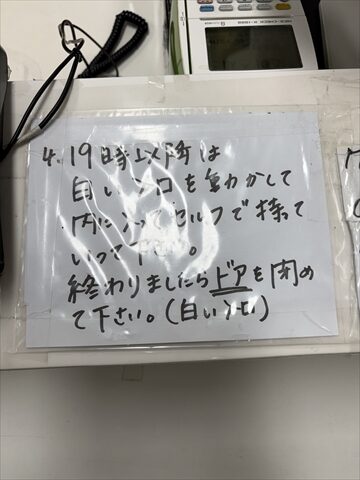 4. 19時以降は
白いソロを動かして
内に入ってセルフで持って
いって下さい。
終わりましたらドアを閉め
て下さい。(白いソロ)